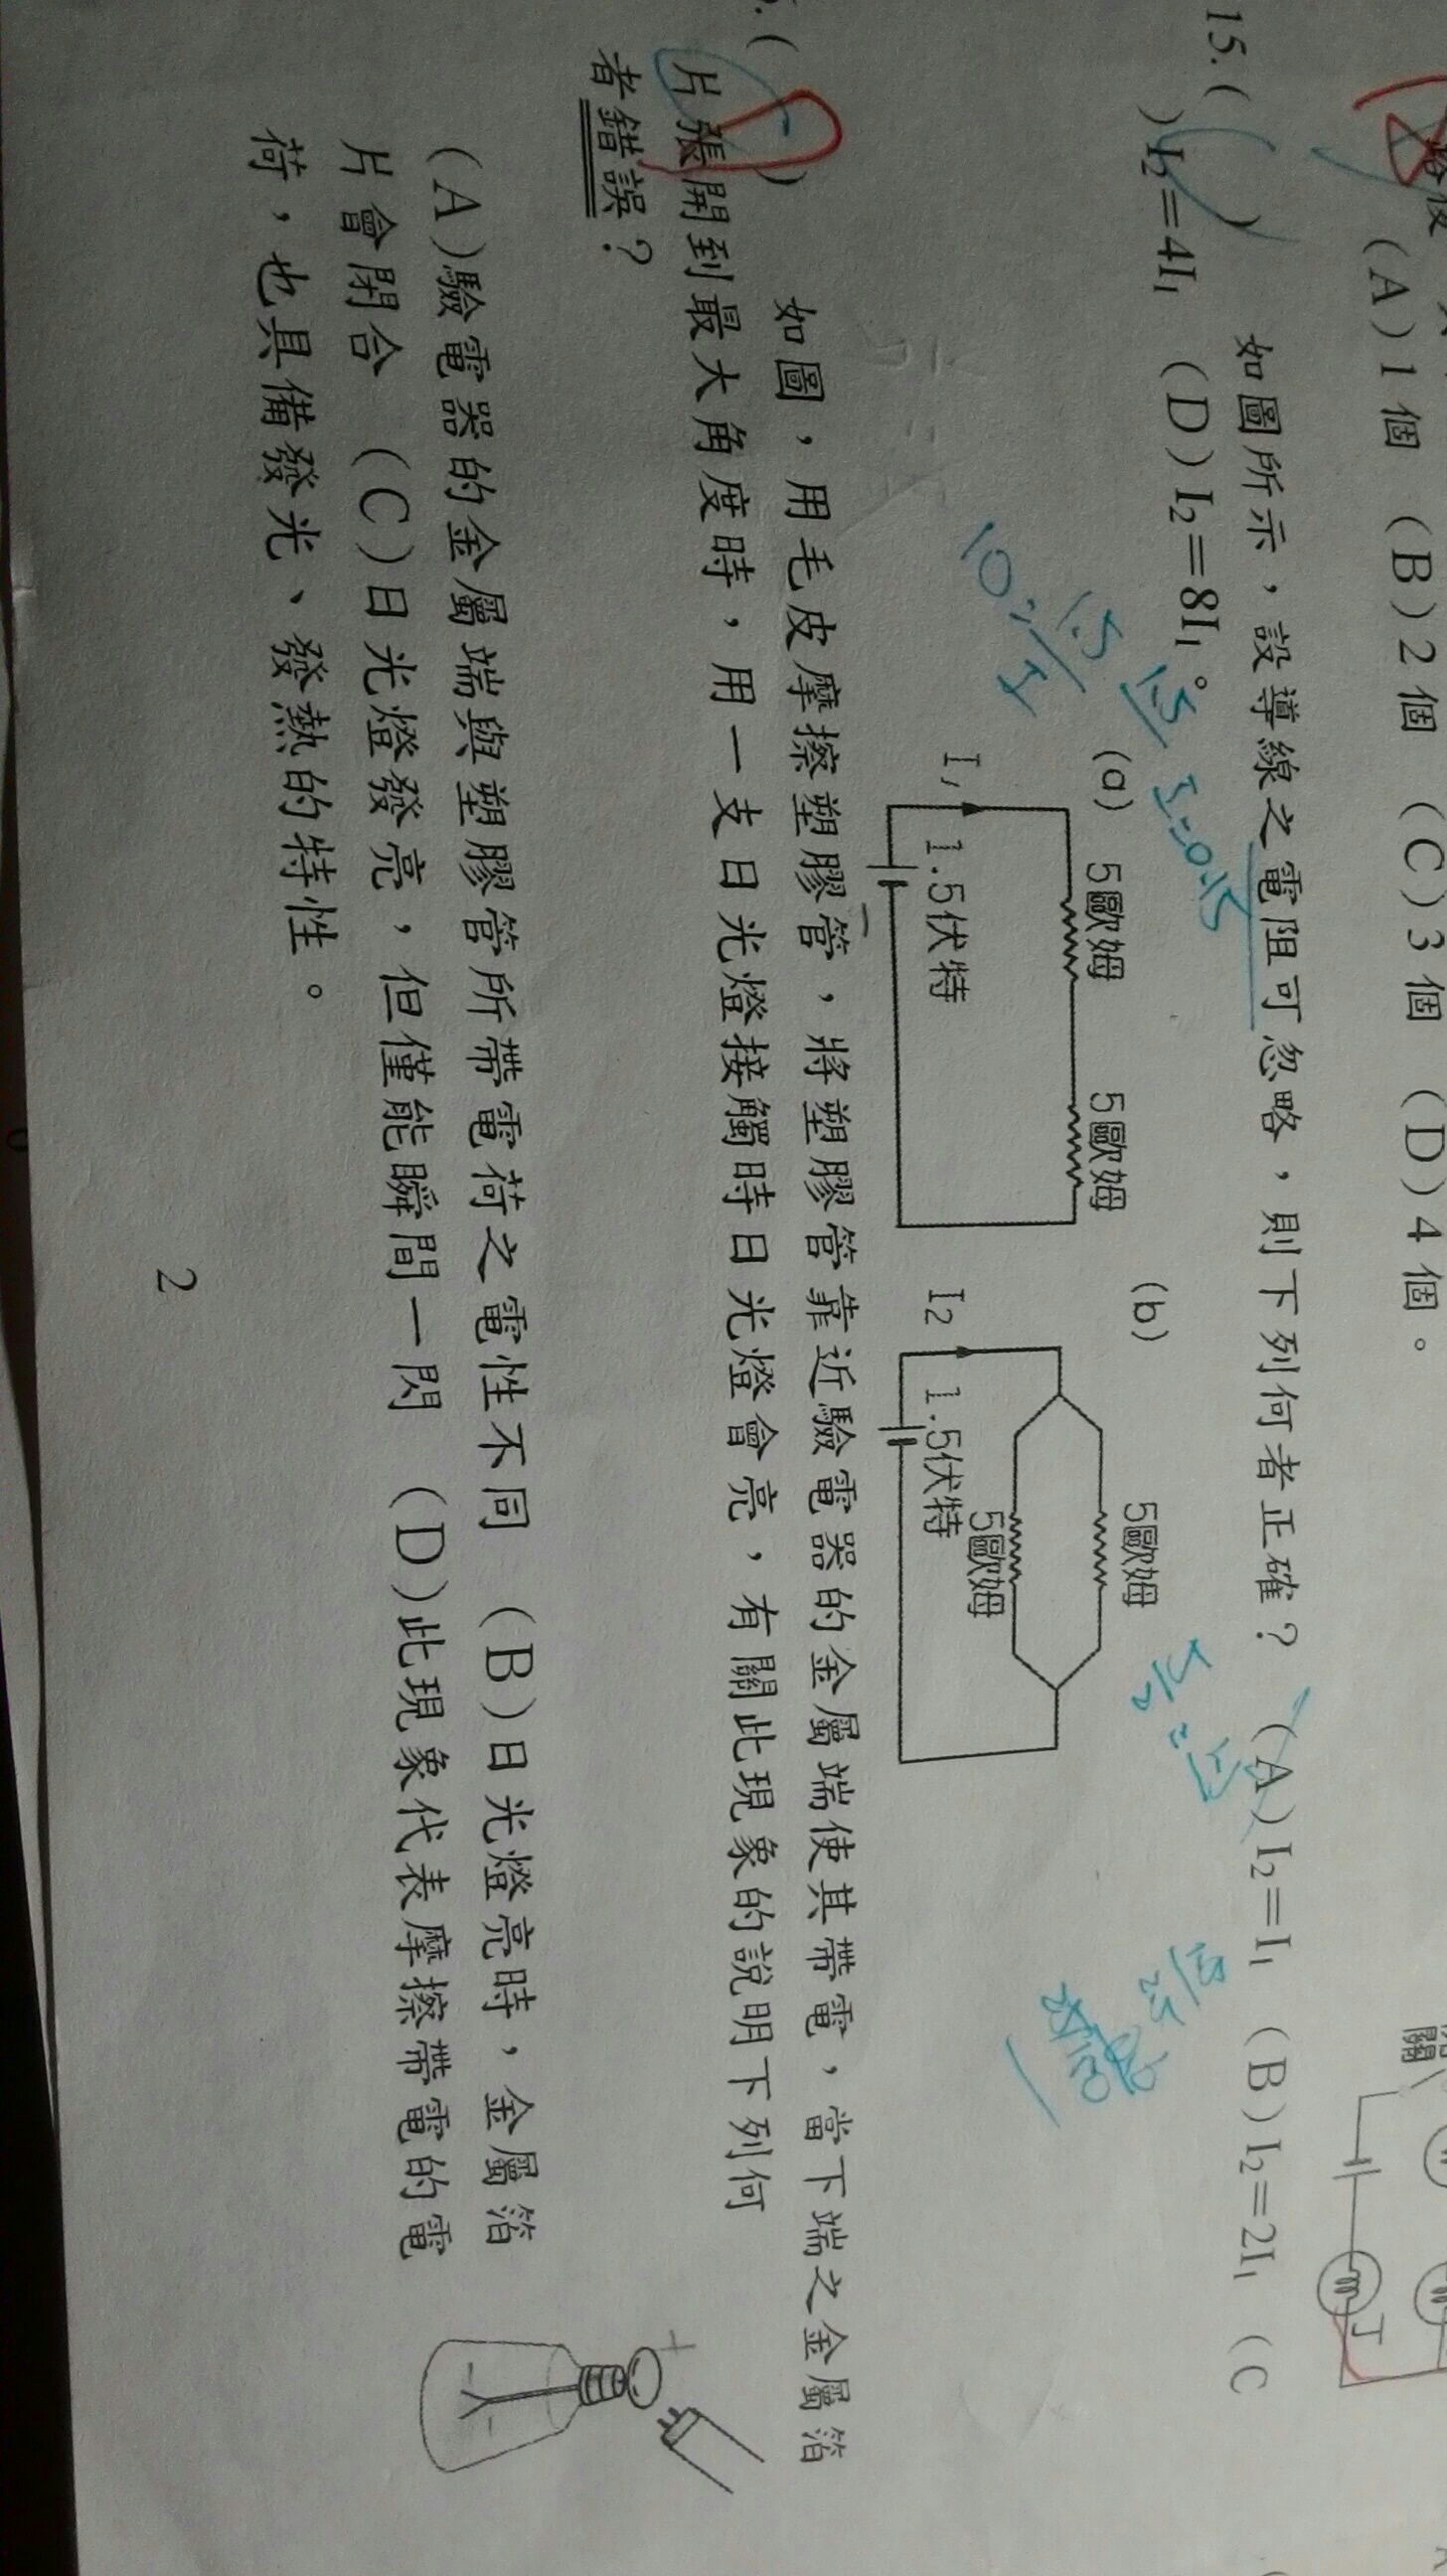 (A)1個 (B)2個 (C)3個 (D)4個。
15.( ) 如圖所示，設導線之電阻可忽略，則下列何者正確？ (A)I₂＝I₁ (B)I₂＝2I₁ (C
)I₂＝4I₁ (D)I₂＝8I₁。
(a) 5歐姆 5歐姆
I₁ 1.5伏特
(b) 5歐姆
5歐姆
I₂ 1.5伏特
.( ) 如圖，用毛皮摩擦塑膠管，將塑膠管靠近驗電器的金屬端使其帶電，當下端之金屬箔
片張開到最大角度時，用一支日光燈接觸時日光燈會亮，有關此現象的說明下列何
者錯誤？
(A)驗電器的金屬端與塑膠管所帶電荷之電性不同 (B)日光燈亮時，金屬箔
片會閉合 (C)日光燈發亮，但僅能瞬間一閃 (D)此現象代表摩擦帶電的電
荷，也具備發光、發熱的特性。
2